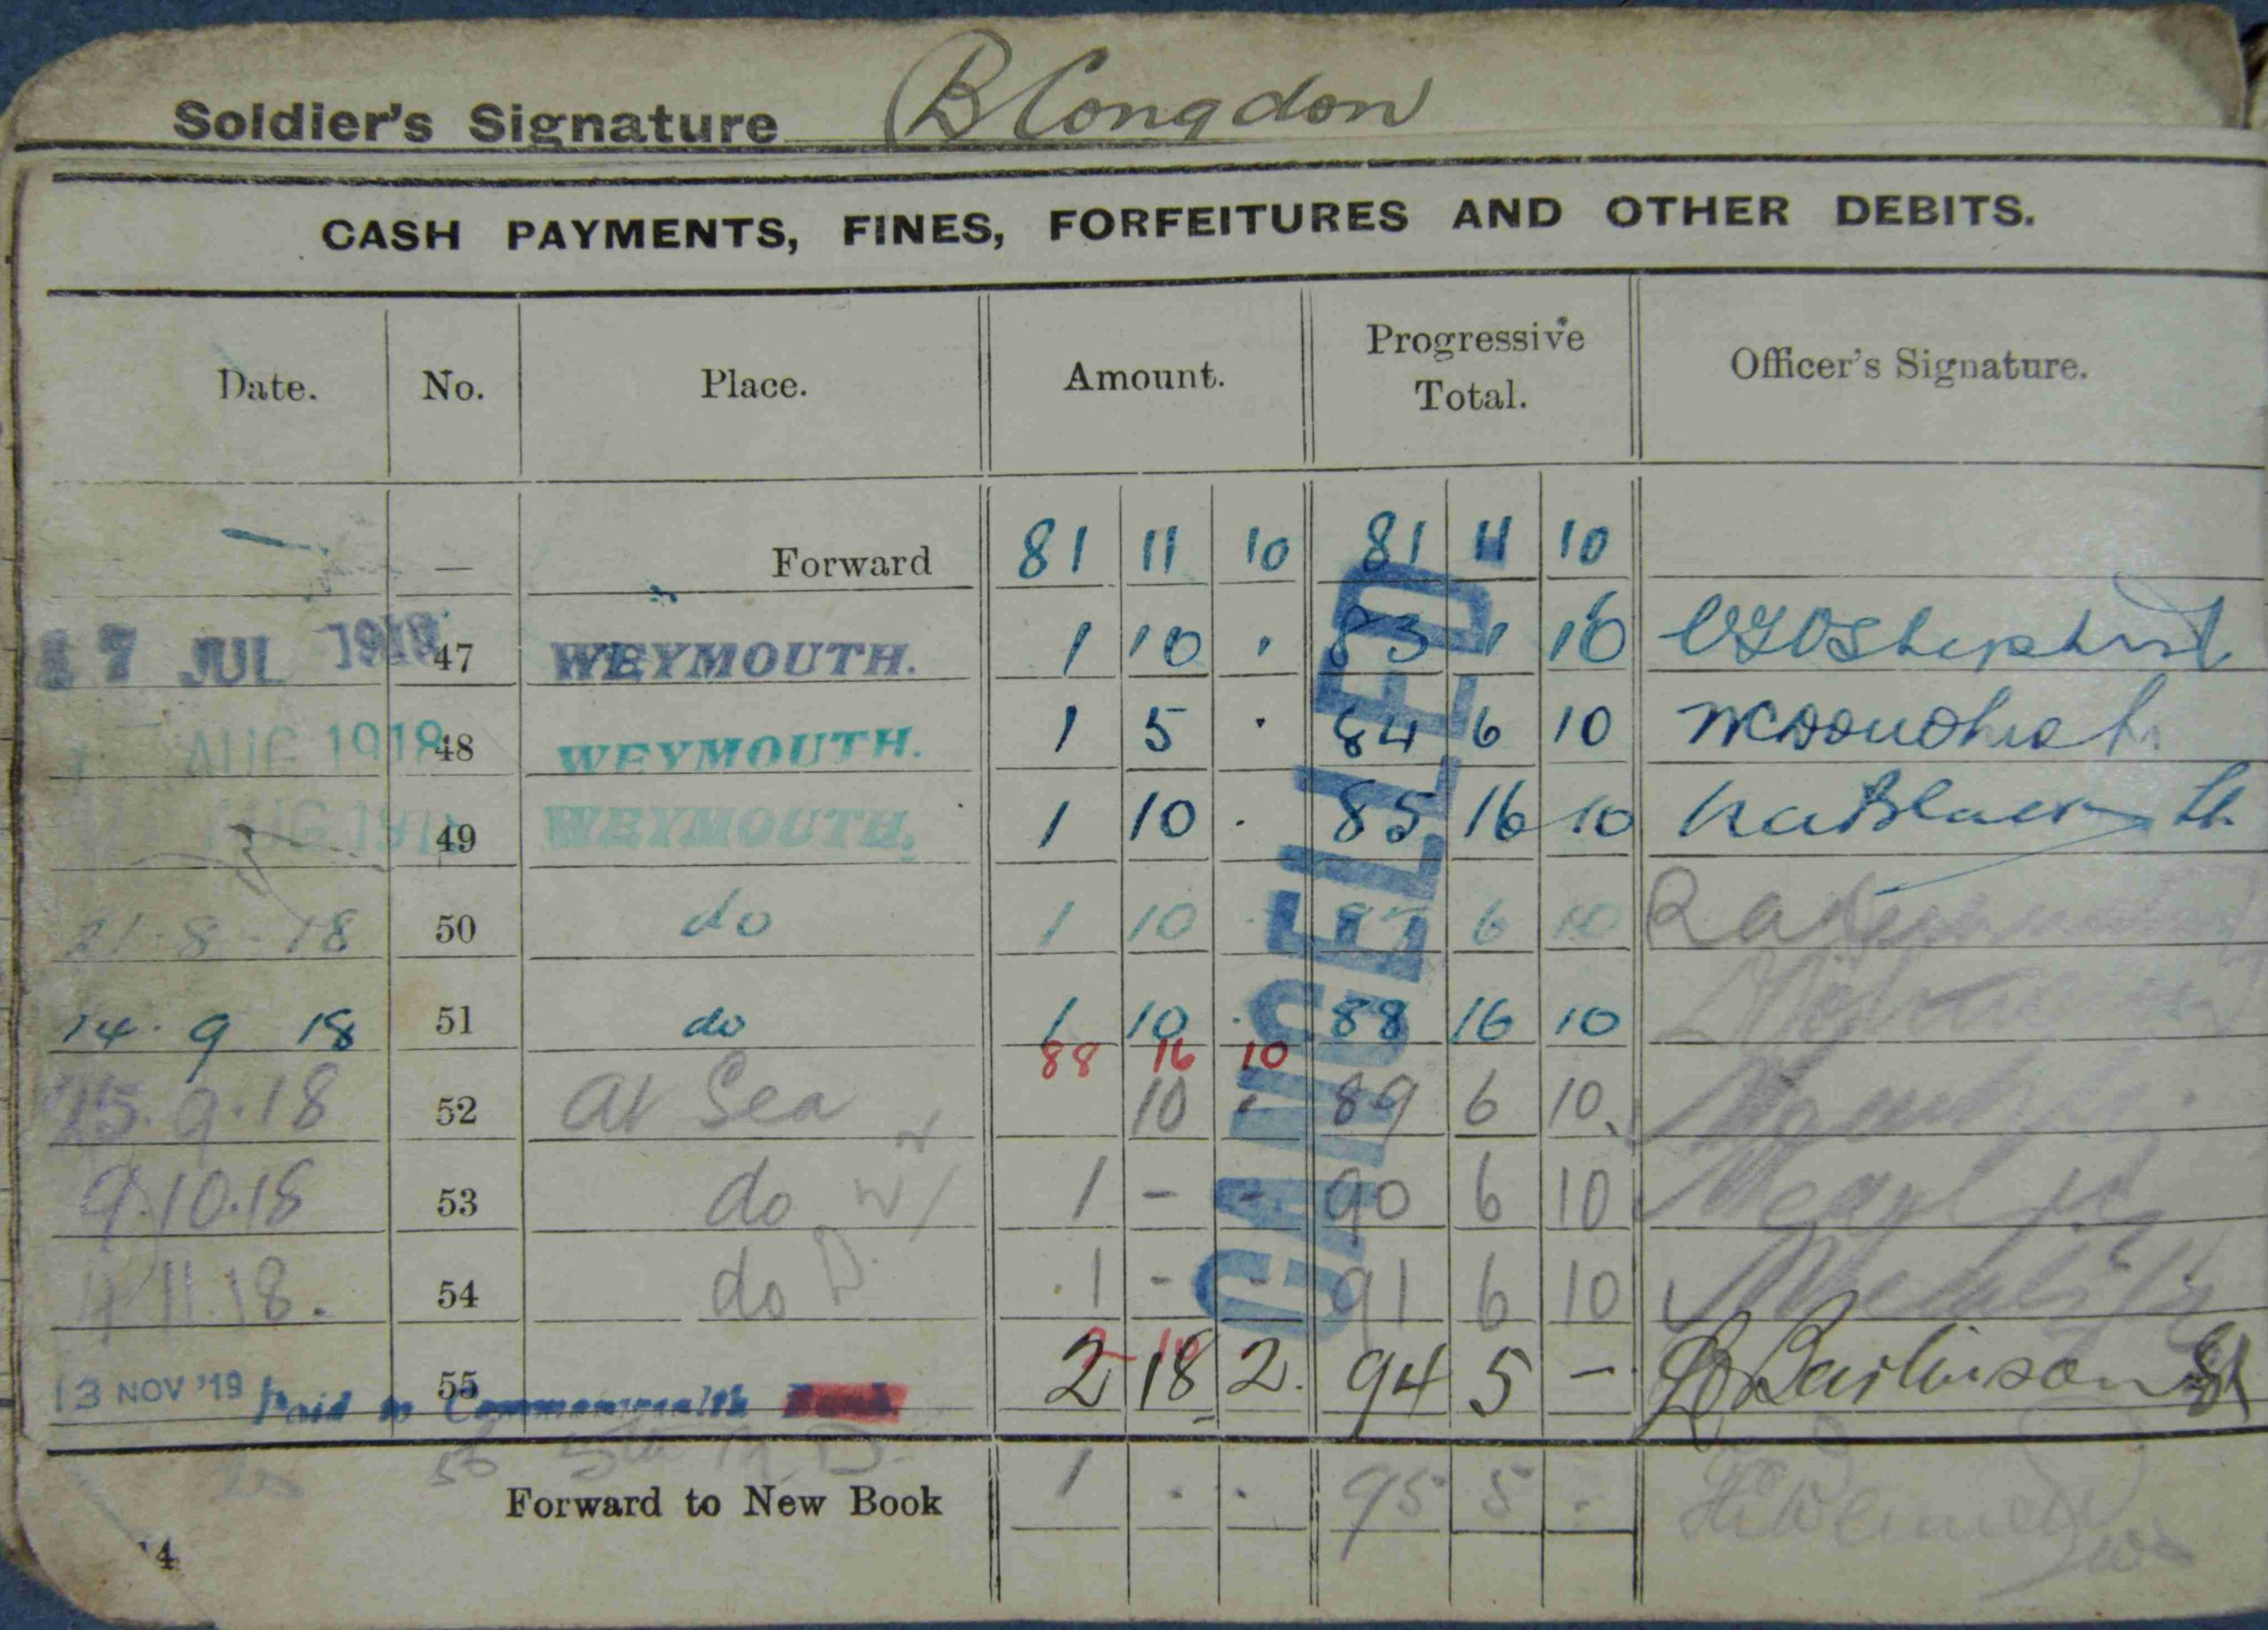 Soldier's Signature B Congdon
CASH PAYMENTS, FINES, FORFEITURES AND OTHER DEBITS.
Date. No. Place. Amount. Progressive Total. Officer's Signature.
— Forward 81 11 10 81 11 10
17 JUL 1918 47 WEYMOUTH. 1 10 . 83 1 10
AUG 1918 48 WEYMOUTH. 1 5 . 84 6 10
AUG 191 49 WEYMOUTH. 1 10 . 85 16 10
21-8-18 50 do 1 10 . 87 6 10
14. 9 18 51 do 1 10 . 88 16 10
88 16 10
25.9.18 52 at Sea 10 . 89 6 10
9.10.18 53 do 1 - - 90 6 10
4 11.18. 54 do 1 - - 91 6 10
13 NOV '19 55 Paid in Commonwealth Bank 2 18 2. 94 5 -
56 5th M.D.
Forward to New Book 1 . . 95 5 .
14
CANCELLED